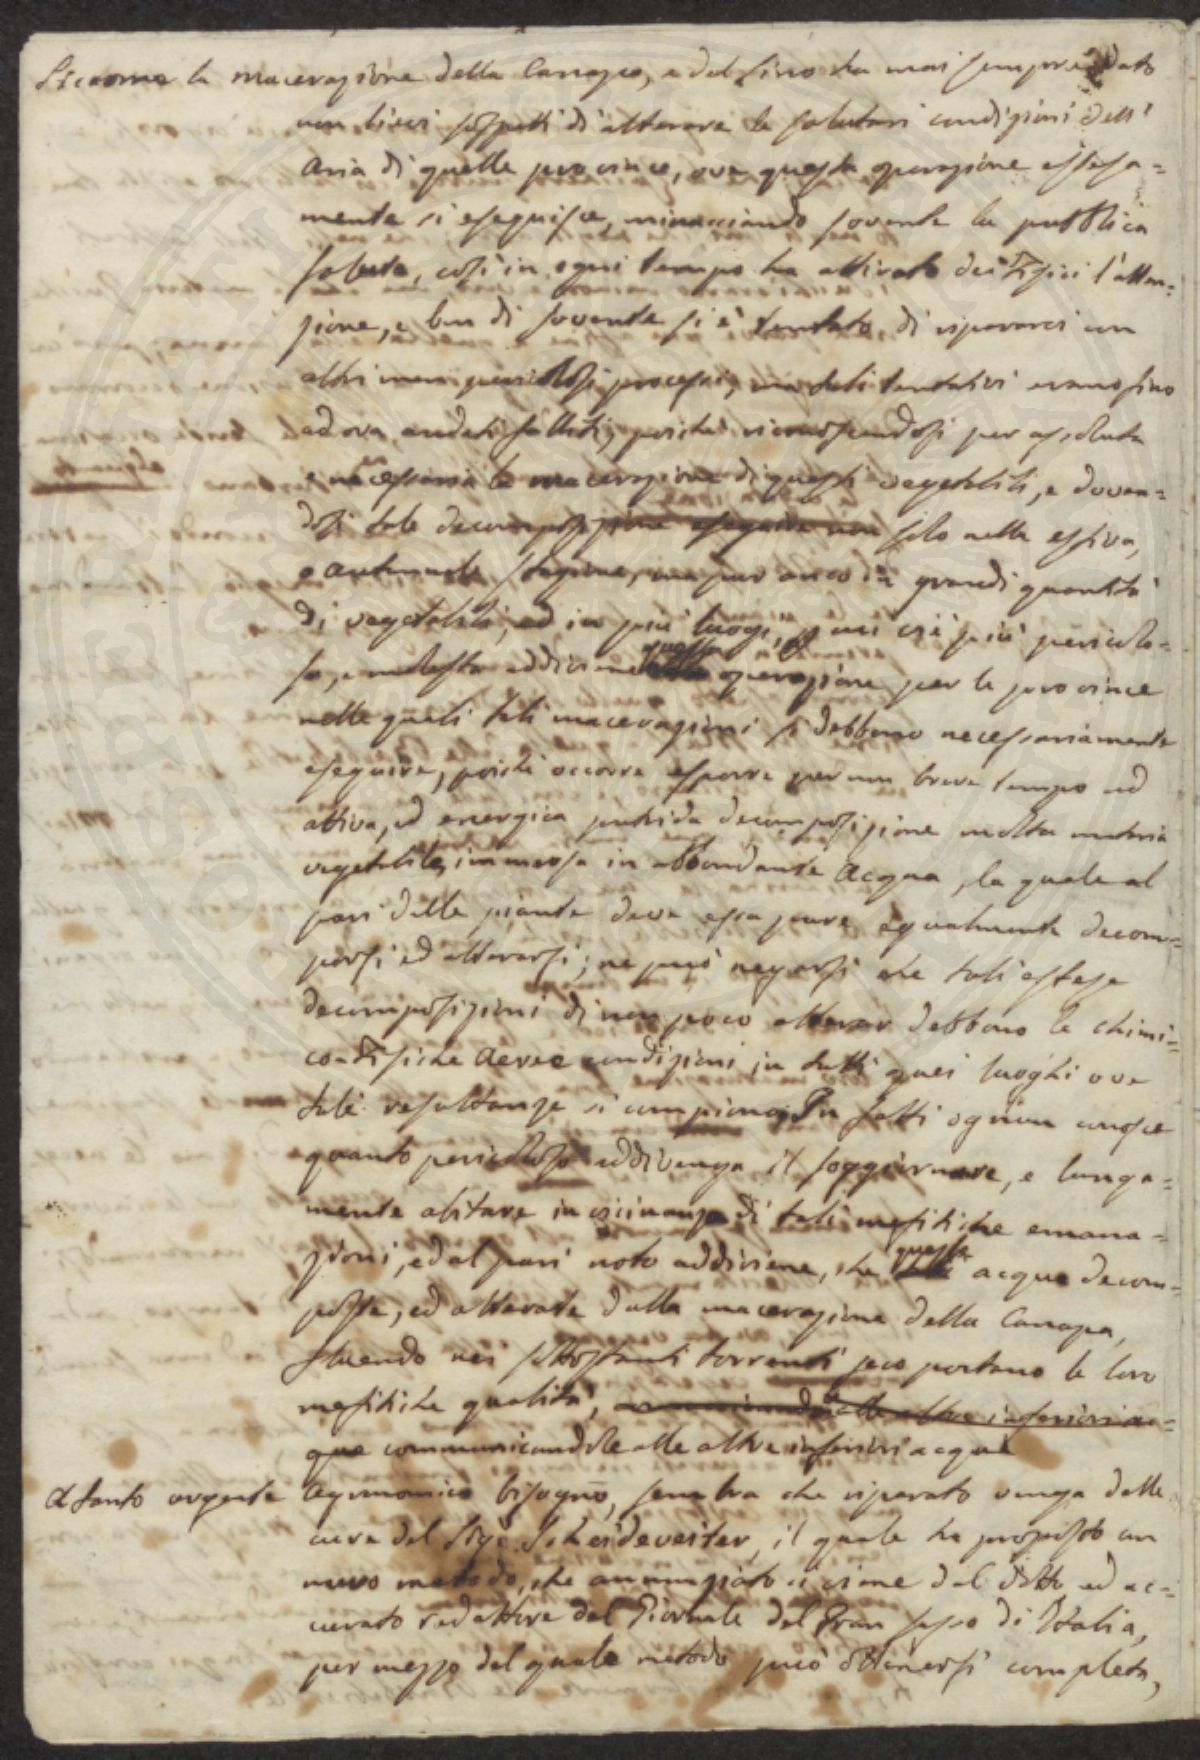 Siccome la macerazione della Canapa, e del Lino ha mai sempre dato
non lievi sospetti di alterare le salutari condizioni dell'
Aria di quelle provincie, ove questa operazione estesa=
mente si eseguisce, minacciando sovente la pubblica
salute, così in ogni tempo ha attirato dei Fisici l'atten=
zione, e ben di sovente si è tentato di ripararci con
altri men pericolosi processi, ma tali tentativi erano fino
ad ora andati falliti, poiché riconoscendosi per assoluta
e necessaria la macerazione di questi vegetabili, e doven=
dosi tale decomposizione eseguire non solo nella estiva,
e autunnale stagione, ma pur anco in grandi quantità
di vegetabili, ed in più luoghi, più pericolo=
sa, e molesta addiviene questa operazione per le provincie
nelle quali tali macerazioni si debbono necessariamente
eseguire, poiché occorre esporre per non breve tempo ad
attiva, ed energica putrida decomposizione molta materia
vegetabile immersa in abbondante Acqua, la quale al
pari delle piante deve essa pure egualmente decom=
porsi ed alterarsi; ne può negarsi che tali estese
decomposizioni di non poco alterar debbono le chimi=
co-Fisiche Aeree condizioni in tutti quei luoghi ove
tali resultanze si compiono. In fatti ognun conosce
quanto pericoloso addivenga il soggiornare, e lunga=
mente abitare in vicinanza di tali mefitiche emana=
zioni, ed al pari noto addiviene, che queste acque decom=
poste, ed alterate dalla macerazione della Canapa,
fluendo nei sottostanti torrenti seco portano le loro
mefitiche qualità, alle altre inferiori ac=
que communicandole alle altre inferiori acque
A tanto urgente Agronomico bisogno, sembra che riparato venga dalle
cure del Sigr. Scheidevester, il quale ha proposto un
nuovo metodo, che annunziato ci viene dal dotto ed ac=
curato redattore del Giornale del Gran Sasso di Italia,
per mezzo del quale metodo può ottenersi completa,